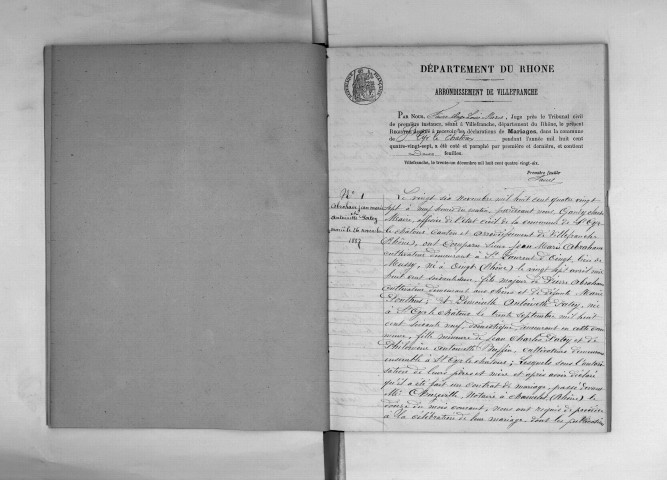 DÉPARTEMENT DU RHONE
ARRONDISSEMENT DE VILLEFRANCHE
PAR NOUS, Juge près le Tribunal civil
de première instance, séant à Villefranche, département du Rhône, le présent
REGISTRE destiné à recevoir les déclarations de Mariages, dans la commune
de St Cyr le Chatoux pendant l'année mil huit cent
quatre-vingt-sept, a été coté et paraphé par première et dernière, et contient
feuilles.
Villefranche, le trente-un décembre mil huit cent quatre vingt-six.
Première feuillet
N° 1
Abraham Jean marie
et
Antoinette Duboy
mariés le 26 novembre
1887
Le vingt six novembre mil huit cent quatre vingt
sept à neuf heures du matin, pardevant nous
Maire, officier de l'état civil de la commune de St Cyr
le chatoux canton et arrondissement de Villefranche
(Rhône), ont comparu sieur Jean Marie Abraham
cultivateur demeurant à St Laurent d'Oingt, lieu de
né à Oingt (Rhône) le vingt sept avril mil
huit cent soixante fils majeur de Pierre Abraham
cultivateur demeurant aux et de défunte Marie
et Antoinette Duboy, née
à St Cyr le chatoux le trente septembre mil huit
cent soixante neuf, domestique demeurant en cette com
mune, fille mineure de Jean Charles Duboy et de
Antoinette cultivateurs demeurant
ensemble à St Cyr le chatoux; lesquels sous l'autori
sation de leurs père et mère et après avoir déclaré
qu'il a été fait un contrat de mariage, passé devant
Me Notaire à Chamelet (Rhône) le
du mois courant, nous ont requis de procéder
à la célébration de leur mariage dont les publications